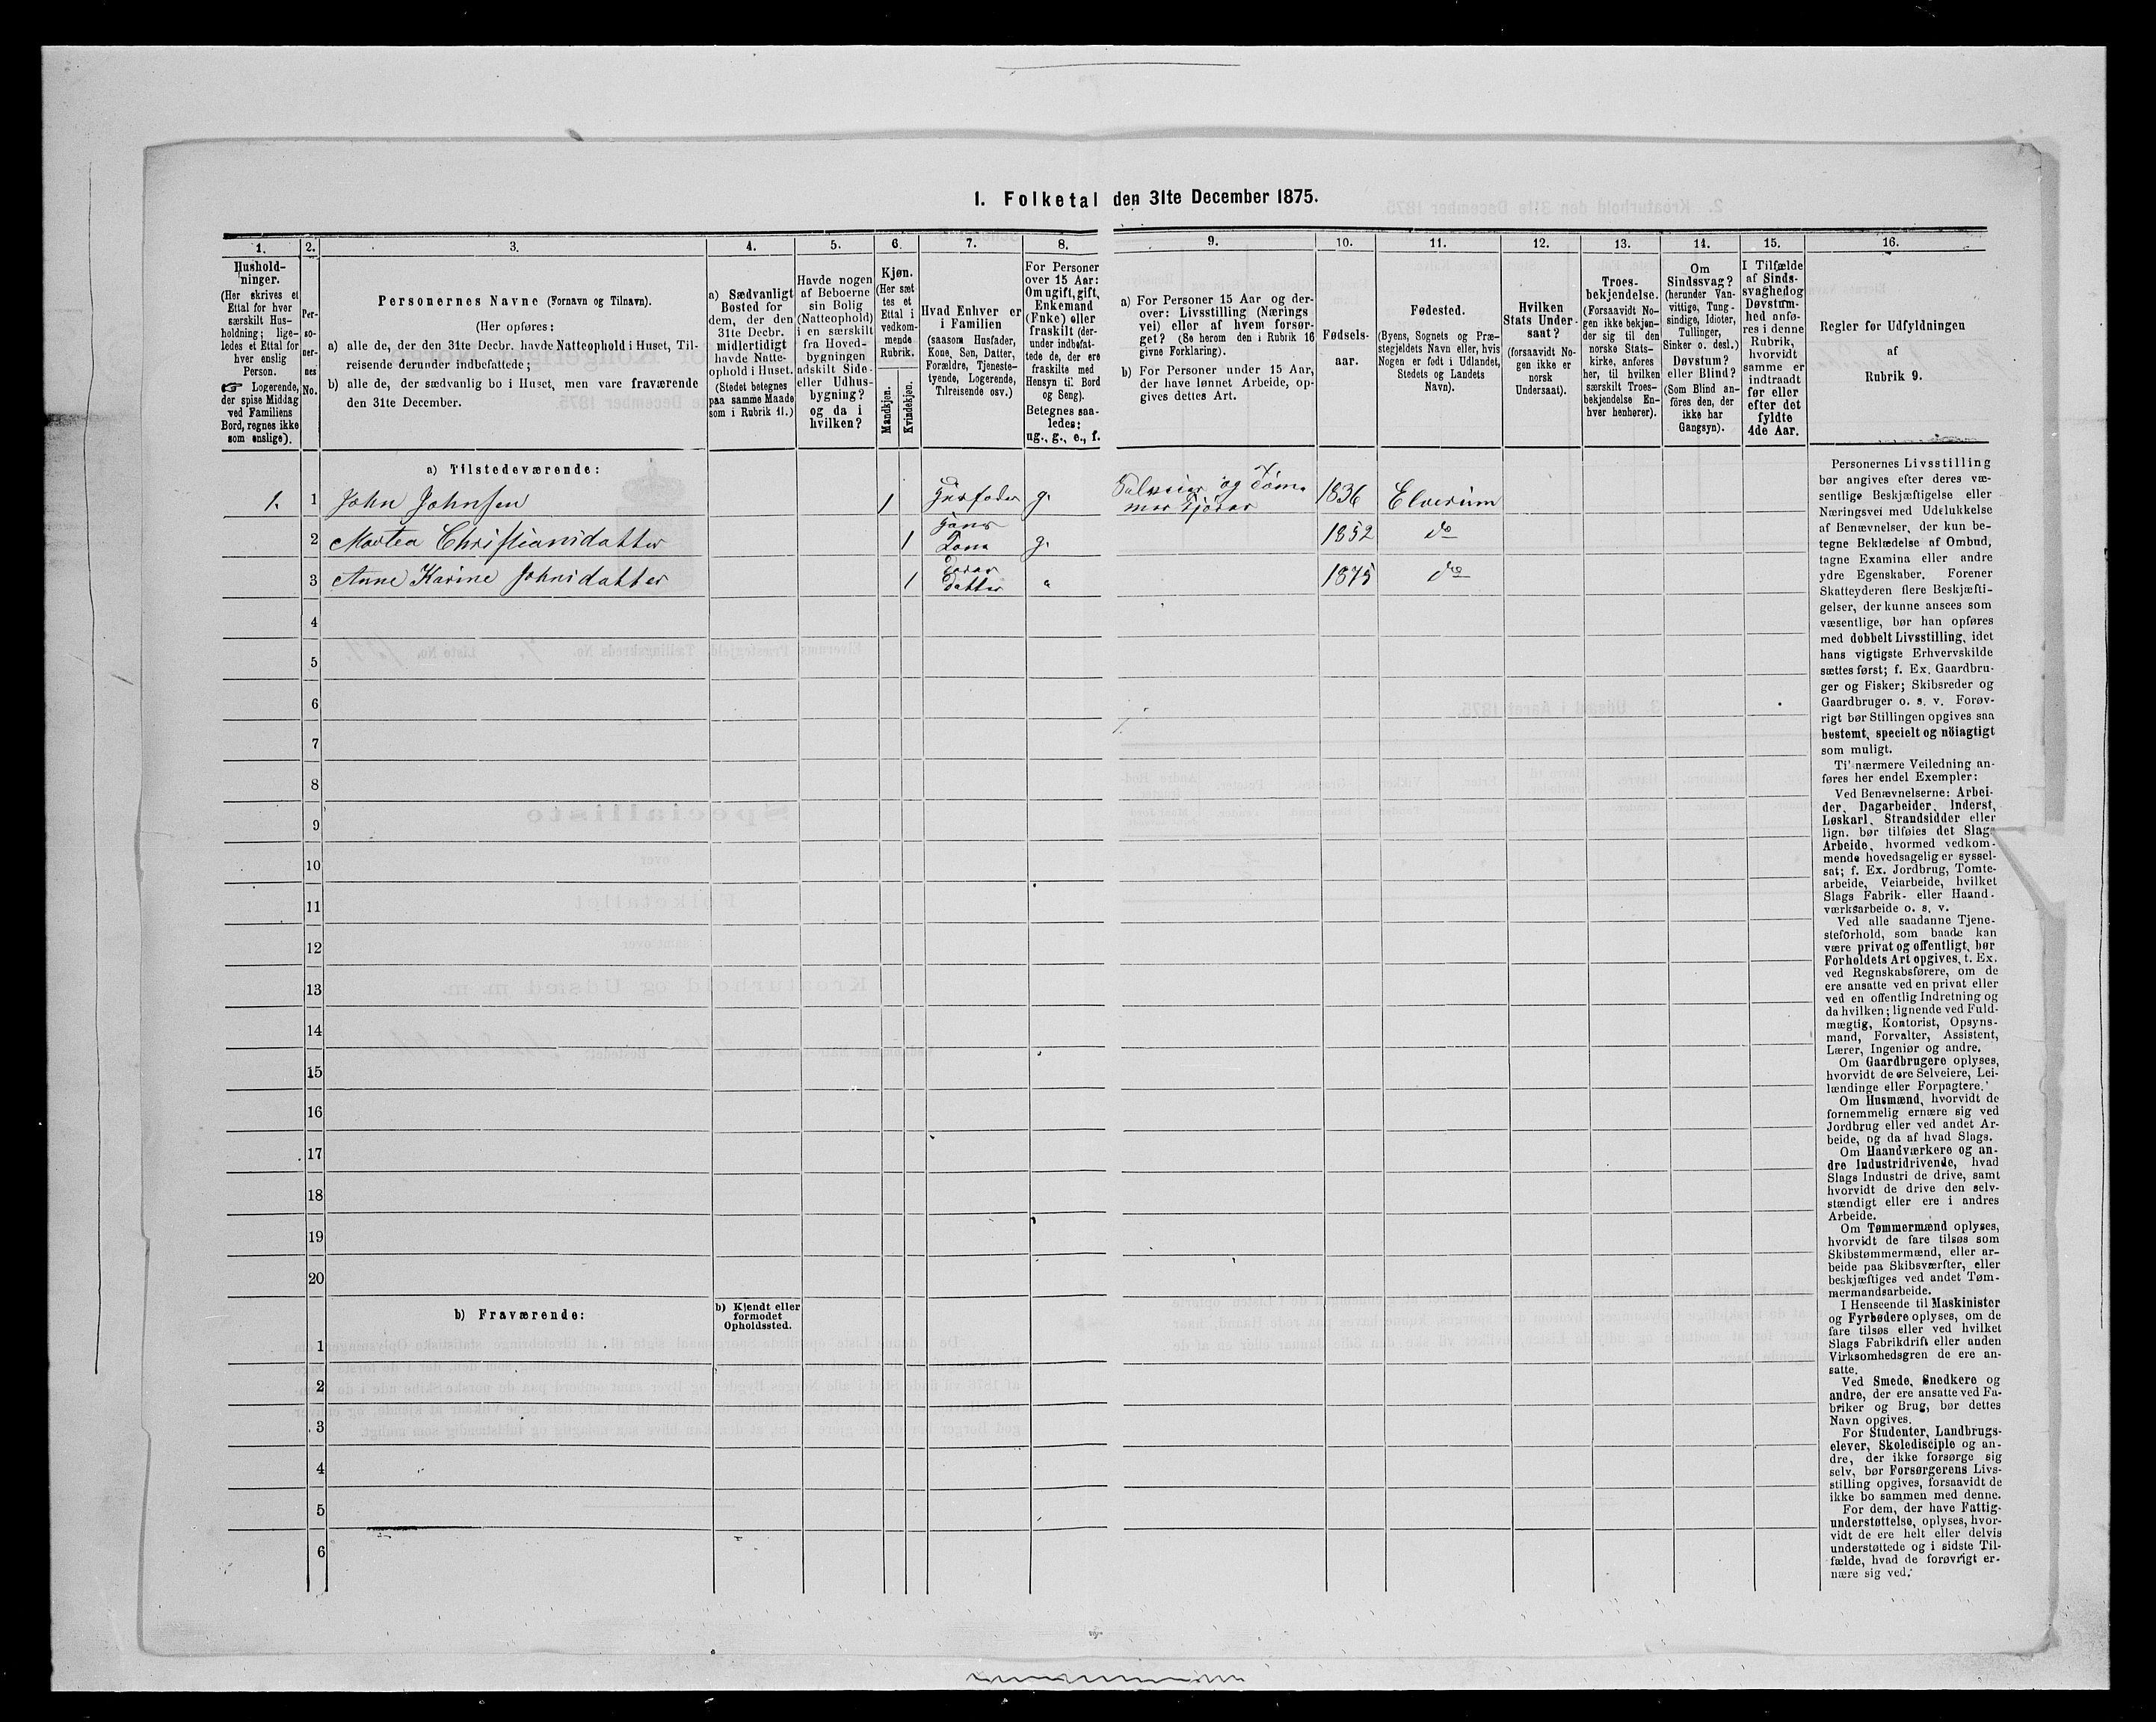 1. Folketal den 31te December 1875.
1.
2.
3.
4.
5.
6.
7.
8.
9.
10.
11.
12.
13.
14.
15.
16.
Hushold-
ninger.
(Her skrives et
Ettal for hver
særskilt Hus-
holdning; lige-
ledes et Ettal for
hver enslig
Person.
☞ Logerende,
der spise Middag
ved Familiens
Bord, regnes ikke
som enslige).
Per-
so-
ner-
nes
No.
Personernes Navne (Fornavn og Tilnavn).
(Her opføres:
a) alle de, der den 31te Decbr. havde Natteophold i Huset, Til-
reisende derunder indbefattede;
b) alle de, der sædvanlig bo i Huset, men vare fraværende
den 31te December.
a) Sædvanligt
Bosted for
dem, der den
31te Decbr.
midlertidigt
havde Natte-
ophold i Huset.
(Stedet betegnes
paa samme Maade
som i Rubrik 11.)
Havde nogen
af Beboerne
sin Bolig
(Natteophold)
i en særskilt
fra Hoved-
bygningen
adskilt Side-
eller Udhus-
bygning?
og da i
hvilken?
Kjøn.
(Her sæt
tes et
Ettal i
vedkom-
mende
Rubrik.
Mandkjøn.
Kvindekjøn.
Hvad Enhver er
i Familien
(saasom Husfader,
Kone, Søn, Datter,
Forældre, Tjeneste-
tyende, Logerende,
Tilreisende osv.)
For Personer
over 15 Aar:
Om ugift, gift,
Enkemand
(Enke) eller
fraskilt (der-
under indbefat-
tede de, der ere
fraskilte med
Hensyn til Bord
og Seng).
Betegnes saa-
ledes:
ug., g., e., f.
a) For Personer 15 Aar og der-
over: Livsstilling (Nærings
vei) eller af hvem forsør-
get? (Se herom den i Rubrik 16
givne Forklaring).
b) For Personer under 15 Aar,
der have lønnet Arbeide, op-
gives dettes Art.
Fødsels-
aar.
Fødested.
(Byens, Sognets og Præ-
stegjeldets Navn eller, hvis
Nogen er født i Udlandet,
Stedets og Landets
Navn).
Hvilken
Stats Under-
saat?
(forsaavidt No-
gen ikke er
norsk
Undersaat).
Troes-
bekjendelse.
(Forsaavidt No-
gen ikke bekjen-
der sig til den
norske Stats-
kirke, anføres
her, til hvilken
særskilt Troes-
bekjendelse En-
hver henhører).
Om
Sindssvag?
(herunder Van-
vittige, Tung-
sindige, Idioter,
Tullinger,
Sinker o. desl.)
Døvstum?
eller Blind?
(Som Blind an-
føres den, der
ikke har
Gangsyn).
I Tilfælde
af Sinds-
svaghed og
Døvstum-
hed anfø-
res i denne
Rubrik,
hvorvidt
samme er
indtraadt
før eller
efter det
fyldte
4de Aar.
Regler for Udfyldningen
af
Rubrik 9.
a) Tilstedeværende:
1. 1 John Johnsen 1 Husfader g. Selveier og Tøm- 1836 Elverum
2 Martea Christiansdatter 1 Hans Kone g. 1852 do
3 Anne Karine Johnsdatter 1 Deres Datter 1875 do
4
5
6
7
8
9
10
11
12
13
14
15
16
17
18
19
20
b) Fraværende:
b) Kjendt eller
formodet
Opholdssted.
1
2
3
4
5
6
Personernes Livsstilling
bør angives efter deres væ-
sentlige Beskjæftigelse eller
Næringsvei med Udelukkelse
af Benævnelser, der kun be-
tegne Beklædelse af Ombud,
tagne Examina eller andre
ydre Egenskaber. Forener
Skatteyderen flere Beskjæfti-
gelser, der kunne ansees som
væsentlige, bør han opføres
med dobbelt Livsstilling, idet
hans vigtigste Erhvervskilde
sættes først; f. Ex. Gaardbru-
ger og Fisker; Skibsreder og
Gaardbruger o. s. v. Forøv-
rigt bør Stillingen opgives saa
bestemt, specielt og nöiagtigt
som muligt.
Ti' nærmere Veiledning an-
føres her endel Exempler:
Ved Benævnelserne: Arbei-
der, Dagarbeider, Inderst,
Løskarl, Strandsidder eller
lign. bør tilføies det Slags
Arbeide, hvormed vedkom-
mende hovedsagelig er syssel-
sat; f. Ex. Jordbrug, Tomte-
arbeide, Veiarbeide, hvilket
Slags Fabrik- eller Haand-
værksarbeide o. s. v.
Ved alle saadanne Tjene-
steforhold, som baade kan
være privat og offentligt, bør
Forholdets Art opgives, t. Ex.
ved Regnskabsførere, om de
ere ansatte ved en privat eller
ved en offentlig Indretning og
da hvilken; lignende ved Fuld-
mægtig, Kontorist, Opsyns-
mand, Forvalter, Assistent,
Lærer, Ingeniør og andre.
Om Gaardbrugere oplyses,
hvorvidt de ere Selveiere, Lei-
lændinge eller Forpagtere.
Om Husmænd, hvorvidt de
fornemmelig ernære sig ved
Jordbrug eller ved andet Ar-
beide, og da af hvad Slags.
Om Haandværkere og an-
dre Industridrivende, hvad
Slags Industri de drive, samt
hvorvidt de drive den selv-
stændigt eller ere i andres
Arbeide.
Om Tømmermænd oplyses,
hvorvidt de fare tilsøs som
Skibstømmermænd, eller ar-
beide paa Skibsværfter, eller
beskjæftiges ved andet Tøm-
mermandsarbeide.
I Henseende til Maskinister
og Fyrbødere oplyses, om de
fare tilsøs eller ved hvilket
Slags Fabrikdrift eller anden
Virksomhedsgren de ere an-
satte.
Ved Smede, Snedkere og
andre, der ere ansatte ved Fa-
briker og Brug, bør dettes
Navn opgives.
For Studenter, Landbrugs-
elever, Skoledisciple og an-
dre, der ikke forsørge sig
selv, bør Forsørgerens Livs-
stilling opgives, forsaavidt de
ikke bo sammen med denne.
For dem, der have Fattig-
understøttelse, oplyses, hvor-
vidt de ere helt eller delvis
understøttede og i sidste Til-
fælde, hvad de forøvrigt er-
nære sig ved.